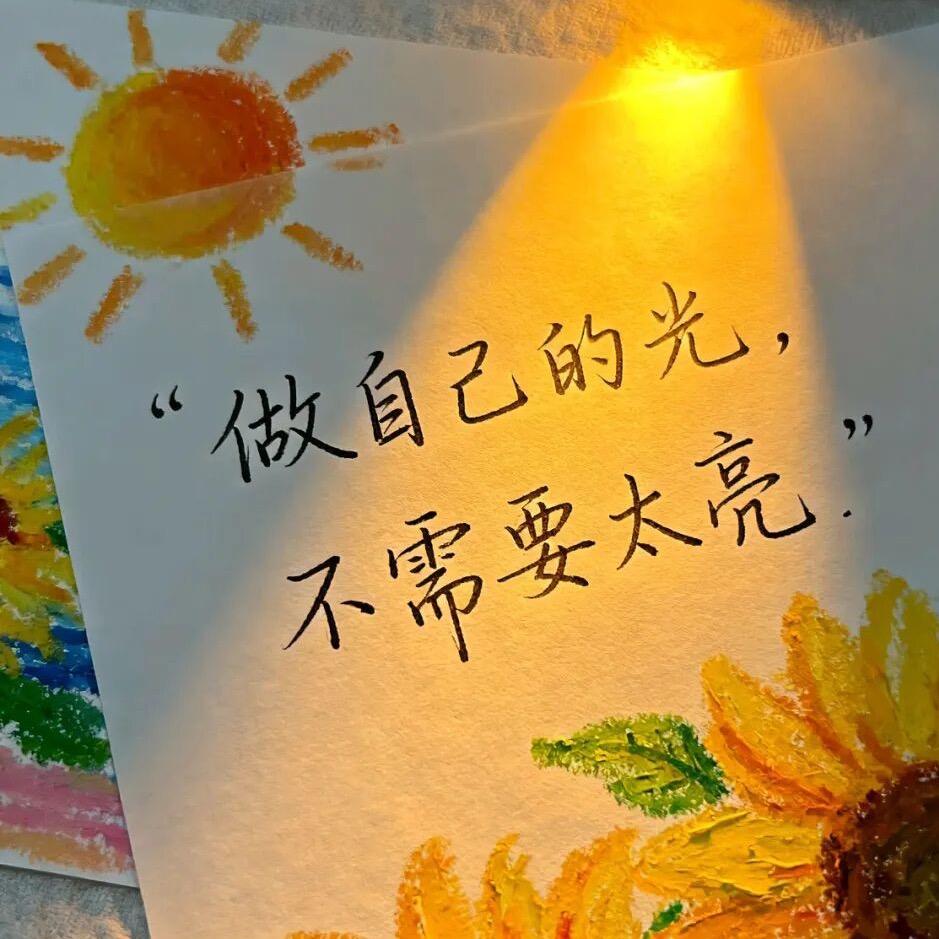 “做自己的光，
不需要太亮.”